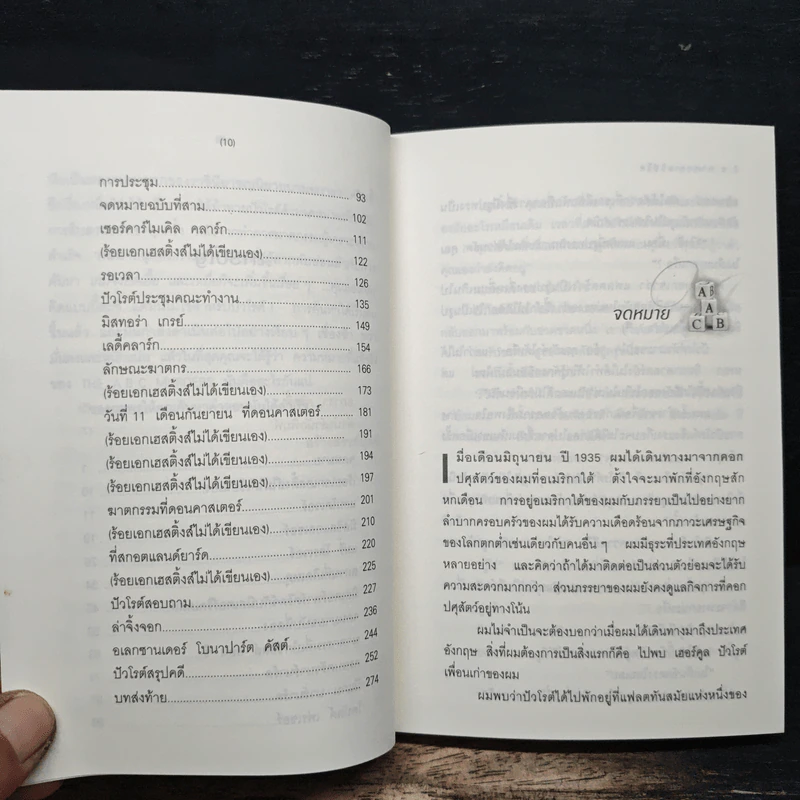 (10)
การประชุม 93
จดหมายฉบับที่สาม 102
เซอร์คาร์ไมเคิล คลาร์ก 111
(ร้อยเอกเฮสติ้งส์ไม่ได้เขียนเอง) 122
รอเวลา 126
ปัวโรต์ประชุมคณะทำงาน 135
มิสทอร่า เกรย์ 149
เลดี้คลาร์ก 154
ลักษณะฆาตกร 166
(ร้อยเอกเฮสติ้งส์ไม่ได้เขียนเอง) 173
วันที่ 11 เดือนกันยายน ที่ดอนคาสเตอร์ 181
(ร้อยเอกเฮสติ้งส์ไม่ได้เขียนเอง) 191
(ร้อยเอกเฮสติ้งส์ไม่ได้เขียนเอง) 194
(ร้อยเอกเฮสติ้งส์ไม่ได้เขียนเอง) 197
ฆาตกรรมที่ดอนคาสเตอร์ 201
(ร้อยเอกเฮสติ้งส์ไม่ได้เขียนเอง) 210
ที่สกอตแลนด์ยาร์ด 220
(ร้อยเอกเฮสติ้งส์ไม่ได้เขียนเอง) 225
ปัวโรต์สอบถาม 227
ล่าจิ้งจอก 236
อเลกซานเดอร์ โบนาปาร์ต คัสต์ 244
ปัวโรต์สรุปคดี 252
บทส่งท้าย 274
จดหมาย
A B
A
C B
เมื่อเดือนมิถุนายน ปี 1935 ผมได้เดินทางมาจากคอก
ปศุสัตว์ของผมที่อเมริกาใต้ ตั้งใจจะมาพักที่อังกฤษสัก
หกเดือน การอยู่อเมริกาใต้ของผมกับภรรยาเป็นไปอย่างยาก
ลำบากครอบครัวของผมได้รับความเดือดร้อนจากภาวะเศรษฐกิจ
ของโลกตกต่ำเช่นเดียวกับคนอื่น ๆ ผมมีธุระที่ประเทศอังกฤษ
หลายอย่าง และคิดว่าถ้าได้มาติดต่อเป็นส่วนตัวย่อมจะได้รับ
ความสะดวกมากกว่า ส่วนภรรยาของผมยังคงดูแลกิจการที่คอก
ปศุสัตว์อยู่ทางโน้น
ผมไม่จำเป็นจะต้องบอกว่าเมื่อผมได้เดินทางมาถึงประเทศ
อังกฤษ สิ่งที่ผมต้องการเป็นสิ่งแรกก็คือ ไปพบ เฮอร์คูล ปัวโรต์
เพื่อนเก่าของผม
ผมพบว่าปัวโรต์ได้ไปพักอยู่ที่แฟลตทันสมัยแห่งหนึ่งของ